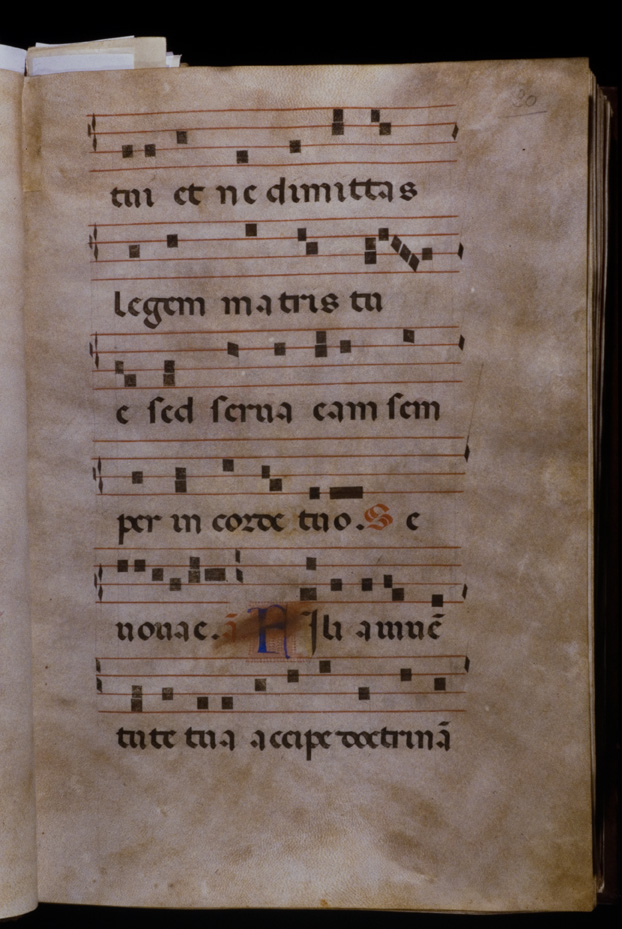 30
tui et ne dimittas
legem matris tu
e sed serua eam sem
per in corde tuo. S e
uouae. ā Fili a iuuē
tute tua accipe doctrinā